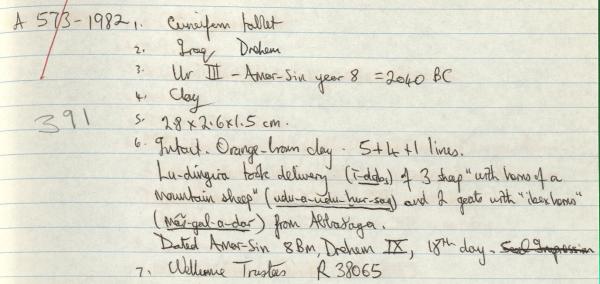 A 573-1982 1. Cuneiform tablet
2. Iraq Drehem
3. Ur III - Amar-Sin year 8 = 2040 BC
4. Clay
391 5. 2.8 x 2.6 x 1.5 cm.
6. Intact. Orange-brown clay. 5+4+1 lines.
Lu-dingira took delivery (ì-dab₅) of 3 sheep "with horns of a
mountain sheep" (udu-a-udu-hur-sag) and 2 goats with "ibex horns"
(máš-gal-a-dar) from Abbasaga.
Dated Amar-Sin 8 Bm, Drehem IX, 18th day. Seal Impression
7. Wellcome Trustees R 38065